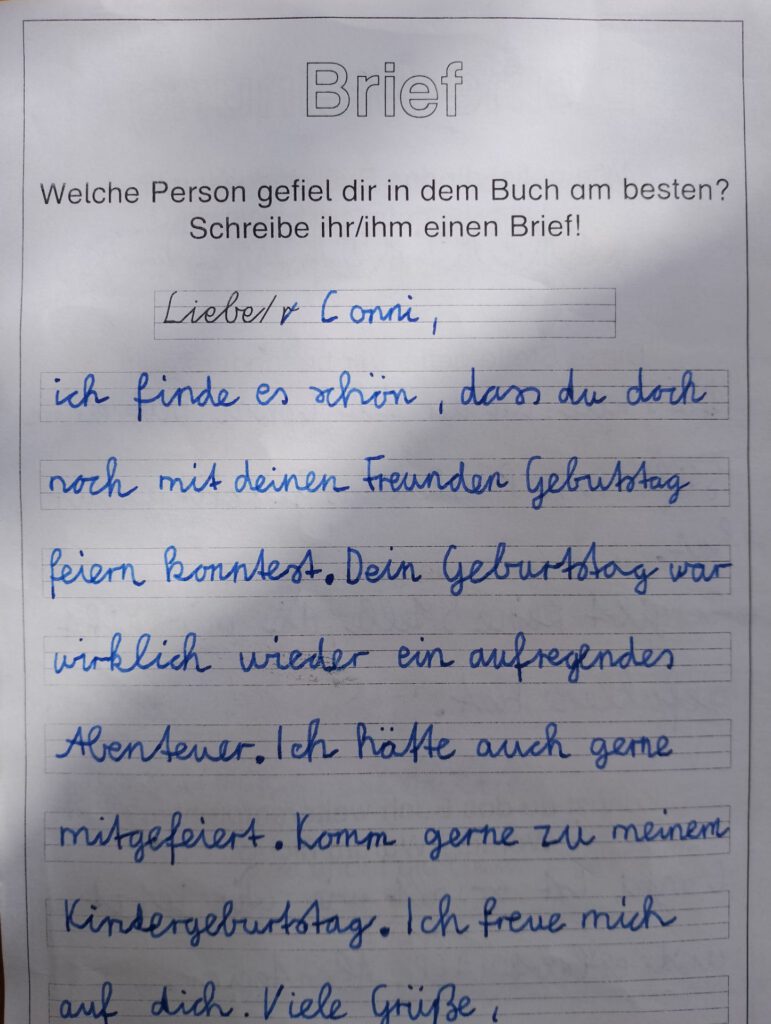 Brief
Welche Person gefiel dir in dem Buch am besten?
Schreibe ihr/ihm einen Brief!
Liebe/r Conni,
ich finde es schön, dass du doch
noch mit deinen Freunden Gebutstag
feiern konntest. Dein Geburtstag war
wirklich wieder ein aufregendes
Abenteuer. Ich hätte auch gerne
mitgefeiert. Komm gerne zu meinem
Kindergeburtstag. Ich freue mich
auf dich. Viele Grüße,